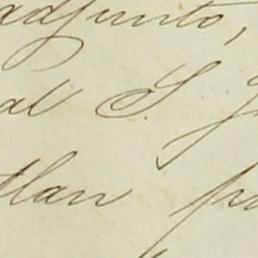 adjunto,
al S. J
tlan pa